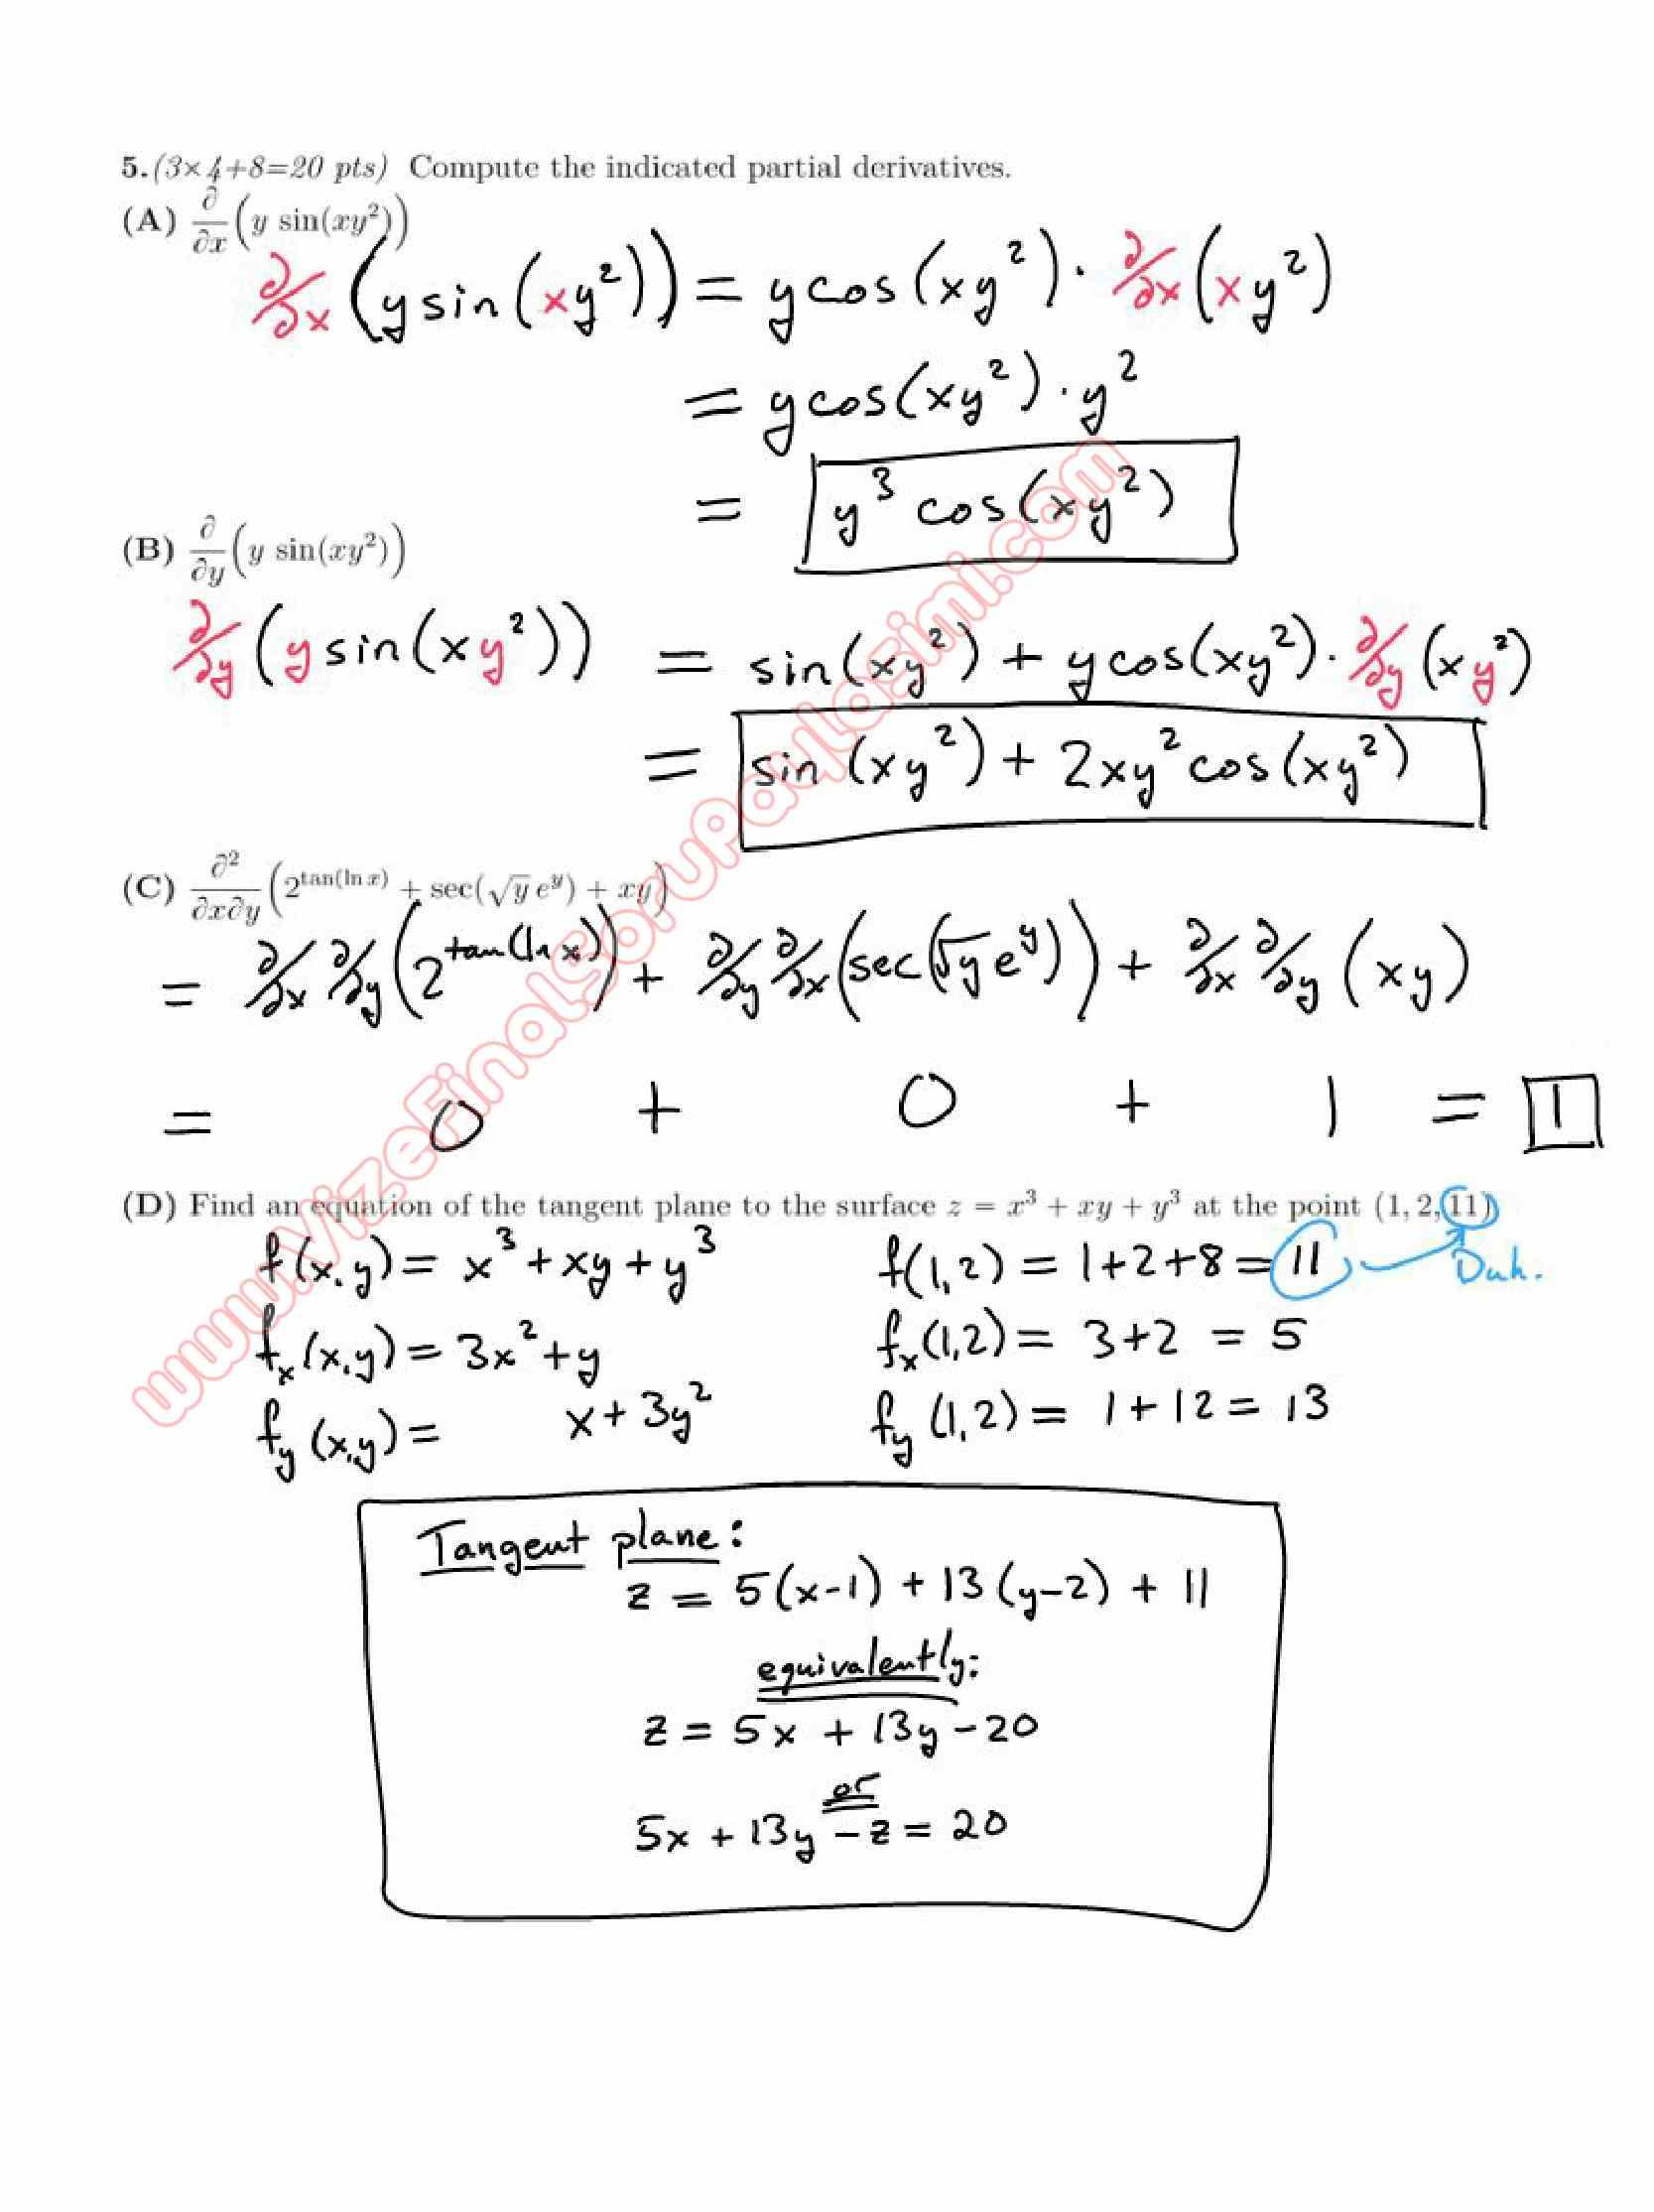 5. (3×4+8=20 pts) Compute the indicated partial derivatives.
(A) ∂/∂x (y sin(xy²))
∂/∂x (y sin(xy²)) = y cos(xy²) · ∂/∂x (xy²)
= y cos(xy²) · y²
= y³ cos(xy²)
(B) ∂/∂y (y sin(xy²))
∂/∂y (y sin(xy²)) = sin(xy²) + y cos(xy²) · ∂/∂y (xy²)
= sin(xy²) + 2xy² cos(xy²)
(C) ∂²/∂x∂y (2^tan(ln x) + sec(√y e^y) + xy)
= ∂/∂x ∂/∂y (2^tan(ln x)) + ∂/∂y ∂/∂x (sec(√y e^y)) + ∂/∂x ∂/∂y (xy)
= 0 + 0 + 1 = 1
(D) Find an equation of the tangent plane to the surface z = x³ + xy + y³ at the point (1, 2, 11)
f(x,y) = x³ + xy + y³ f(1,2) = 1+2+8 = 11 Duh.
fₓ(x,y) = 3x² + y fₓ(1,2) = 3+2 = 5
f_y(x,y) = x + 3y² f_y(1,2) = 1+12 = 13
Tangent plane:
z = 5(x-1) + 13(y-2) + 11
equivalently:
z = 5x + 13y - 20
or
5x + 13y - z = 20
www.VizeFinalSoruPaylasimi.com